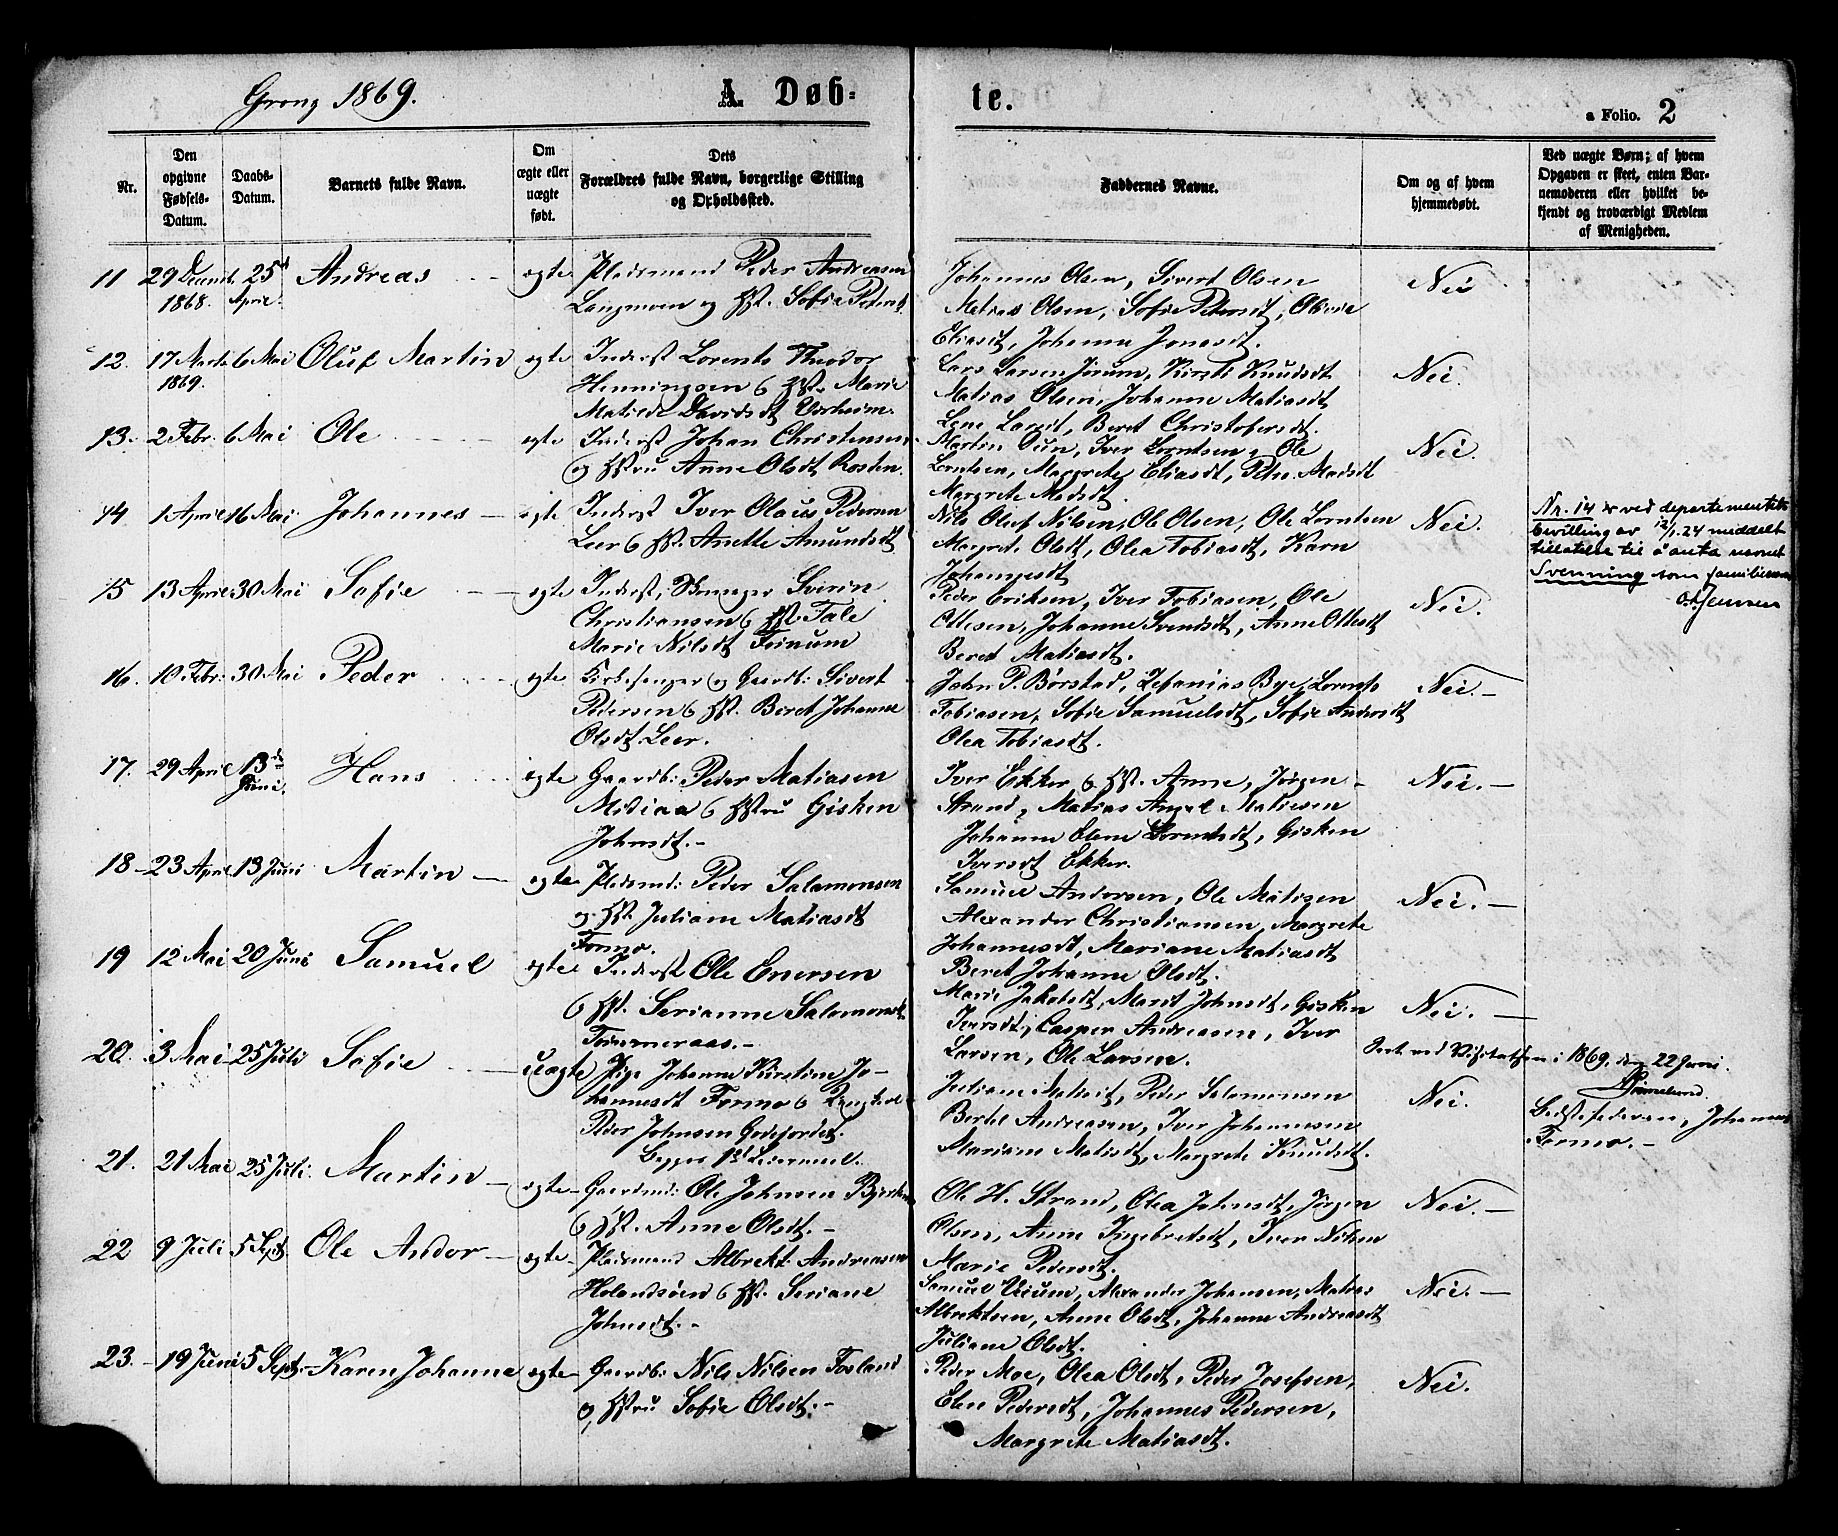 Grong 1869.
A Døb=
te.
a Folio. 2
Nr.
Den opgivne Fødsels-Datum.
Daabs-Datum.
Barnets fulde Navn.
Om ægte eller uægte født.
Dets Forældres fulde Navn, borgerlige Stilling og Opholdssted.
Faddernes Navne.
Om og af hvem hjemmedøbt.
Ved uægte Børn; af hvem Opgaven er skeet, enten Barnemoderen eller hvilket bekjendt og troværdigt Medlem af Menigheden.
11 29 Decemb. 1868. 25d April. Andreas ægte Pladsmand Peder Andreasen
Langmoen og Hst. Sofie Pedersd.
Johannes Olsen, Sivert Olsen
Matias Olsen, Sofie Petersdt, Olivie
Eliasdt, Johanna Jonasdt.
Nei
12. 17 Marts 1869. 6 Mai Oluf Martin ægte Inderst Lorents Theodor
Henningsen & Hst. Marie
Matilde Davidsdt
Lars Larsen Jørum, Kirsti Knudsdt
Matias Olsen, Johanne Matiasdt
Lene Larsdt, Beret Christofersdt.
Nei.
13. 2 Febr. 6 Mai Ole ægte Inderst Johan Christensen
& Hstru Anne Olsdt Rosten.
Martin Iver Lorntsen, Ole
Lorntsen, Margrete Eliasdt, Madsdt
Margrete Madsdt.
Nei.
14 1 April 16 Mai Johannes ægte Inderst Iver Olaus Pedersen
Leer & Hst. Anette Amundsdt
Nils Oluf Nilsen, Ole Olsen, Ole Lorntsen
Margret Olsdt, Olea Tobiasdt, Karn
Johannesdt
Nei
Nr. 14 er ved departementets
bevilling av 12/1.24 meddelt
tillatelse til å anta navnet
Svenning som familienavn
O. Jensen
15 13 April 30 Mai Sofie ægte Inderst, Sverin
Christiansen & Hst. Tale
Marie Nilsdt Fornum
Peder Eriksen, Iver Tobiasen, Ole
Ottesen, Johanne Svendsdt, Anne Ottesdt
Beret Matiasdt.
Nei.
16. 10 Febr: 30 Mai Peder ægte Kirkesanger og Gaardb: Sivert
Pedersen & Hst. Beret Johanne
Olsdt Leer.
John P. Børstad, Zefanias Bye, Lorents
Tobiasen, Sofie Samuelsdt, Sofie Andersdt
Olea Tobiasdt.
Nei.-
17. 29 April 13de Juni. Hans ægte Gaardb: Peder Matiasen
Metiaa & Hstru Gisken
Johnsdt.-
Iver Ekker & Hst. Anne, Jørgen
Strand, Matias Angel Matiesen
Johanne Elene Lorntsdt, Gisken
Iversdt Ekker.
Nei.-
18- 23 April 13 Juni Martin ægte Pladsmd: Peder Salamonsen
og Hst. Juliane Matiasdt
Formo.
Samuel Andersen, Ole Matisen
Alexander Christiansen, Margrete
Johannesdt, Mariane Matiasdt
Beret Johanne Olsdt.
Nei.-
19 12 Mai 20 Juni Samuel ægte Inderst Ole Enersen
& Hst. Serianne Salomonsdt
Tømmeraas.-
Marie Jakobsdt, Marit Johnsdt, Gisken
Iversdt, Casper Andreasen, Iver
Larsen, Ole Larsen.
Nei.-
Seet ved Visitatsen i 1869, den 22 Juni.
20. 3 Mai 25 Juli Sofie uægte Pige Johanne Kirstine Jo-
hannesdt Formo &
Peder Johnsen Godejordet.
Begges 1ste Leiermaal.
Juliane Matisdt, Peder Salomonsen
Bertel Andreasen, Iver Johannesen
Mariane Matisdt, Margrete Knudsdt.
Nei.
Bedstefaderen, Johannes
Formo.-
21. 21 Mai 25 Juli. Martin ægte Gaardmd: Ole Johnsen
& Hst. Anne Olsdt.-
Ole H. Strand, Olea Johnsdt, Jørgen
Olsen, Anne Ingebretsdt, Iver Nilsen
Marie Pedersdt.
Nei.-
22 9 Juli 5 Sept. Ole Andor ægte Pladsmand Albrekt Andreasen
Holandsøen & Hst. Seriane
Johnsdt.-
Samuel Viium, Alexander Johansen, Matias
Albrektsen, Anne Olsdt, Johanne Andreasdt
Juliane Olsdt.
Nei.-
23. 19 Juni 5 Sept. Karen Johanne ægte Gaardb: Nils Nilsen Fosland
og Hstru Sofie Olsdt.-
Peder Moe, Olea Olsdt, Peder Josefsen,
Elen Pedersdt, Johannes Pedersen,
Margrete Matiasdt.
Nei.